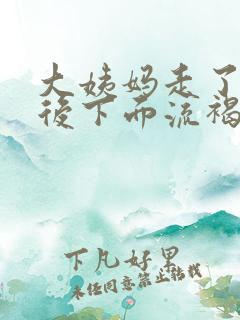 大姨妈走了
後下面流褐
下凡好果
未经同意禁止转载